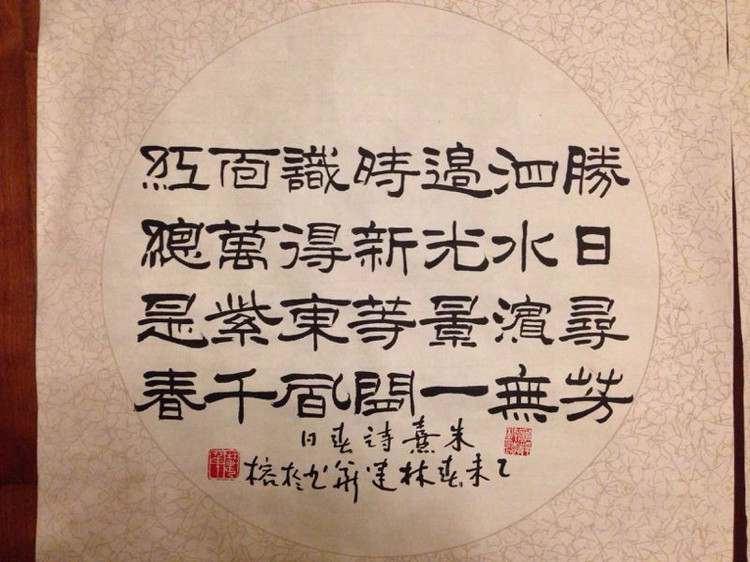 勝日尋芳
泗水濱無
邊光景一
時新等閒
識得東風
面萬紫千
紅總是春
朱熹詩春日
乙未春林建華書於榕